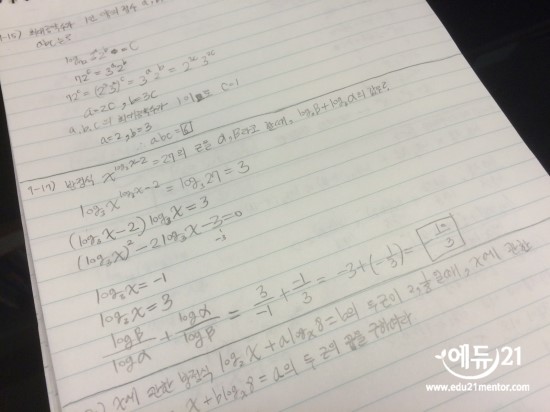 1-15) 최대공약수가 1인 세 정수 a, b,
abc는?
log₇₂ 3ᵃ2ᵇ = C
72ᶜ = 3ᵃ2ᵇ
72ᶜ = (2³3²)ᶜ = 3ᵃ2ᵇ = 2³ᶜ3²ᶜ
a=2C, b=3C
a, b, c의 최대공약수가 1이므로 C=1
a=2, b=3
∴ abc=6
1-17) 방정식 x^(log₃x-2) = 27의 두 근을 α, β라고 할 때, log_αβ + log_βα의 값은?
log₃x^(log₃x-2) = log₃27 = 3
(log₃x-2) log₃x = 3
(log₃x)² - 2log₃x - 3 = 0
log₃x = -1
log₃x = 3
logβ/logα + logα/logβ = 3/-1 + -1/3 = -3 + (-1/3) = -10/3
) x에 관한 방정식 log₂x + a logₓ8 = b의 두 근이 2, 1/8 일 때, x에 관한
x + b logₓ8 = a의 두 근의 곱을 구하여라
에듀21
www.edu21mentor.com